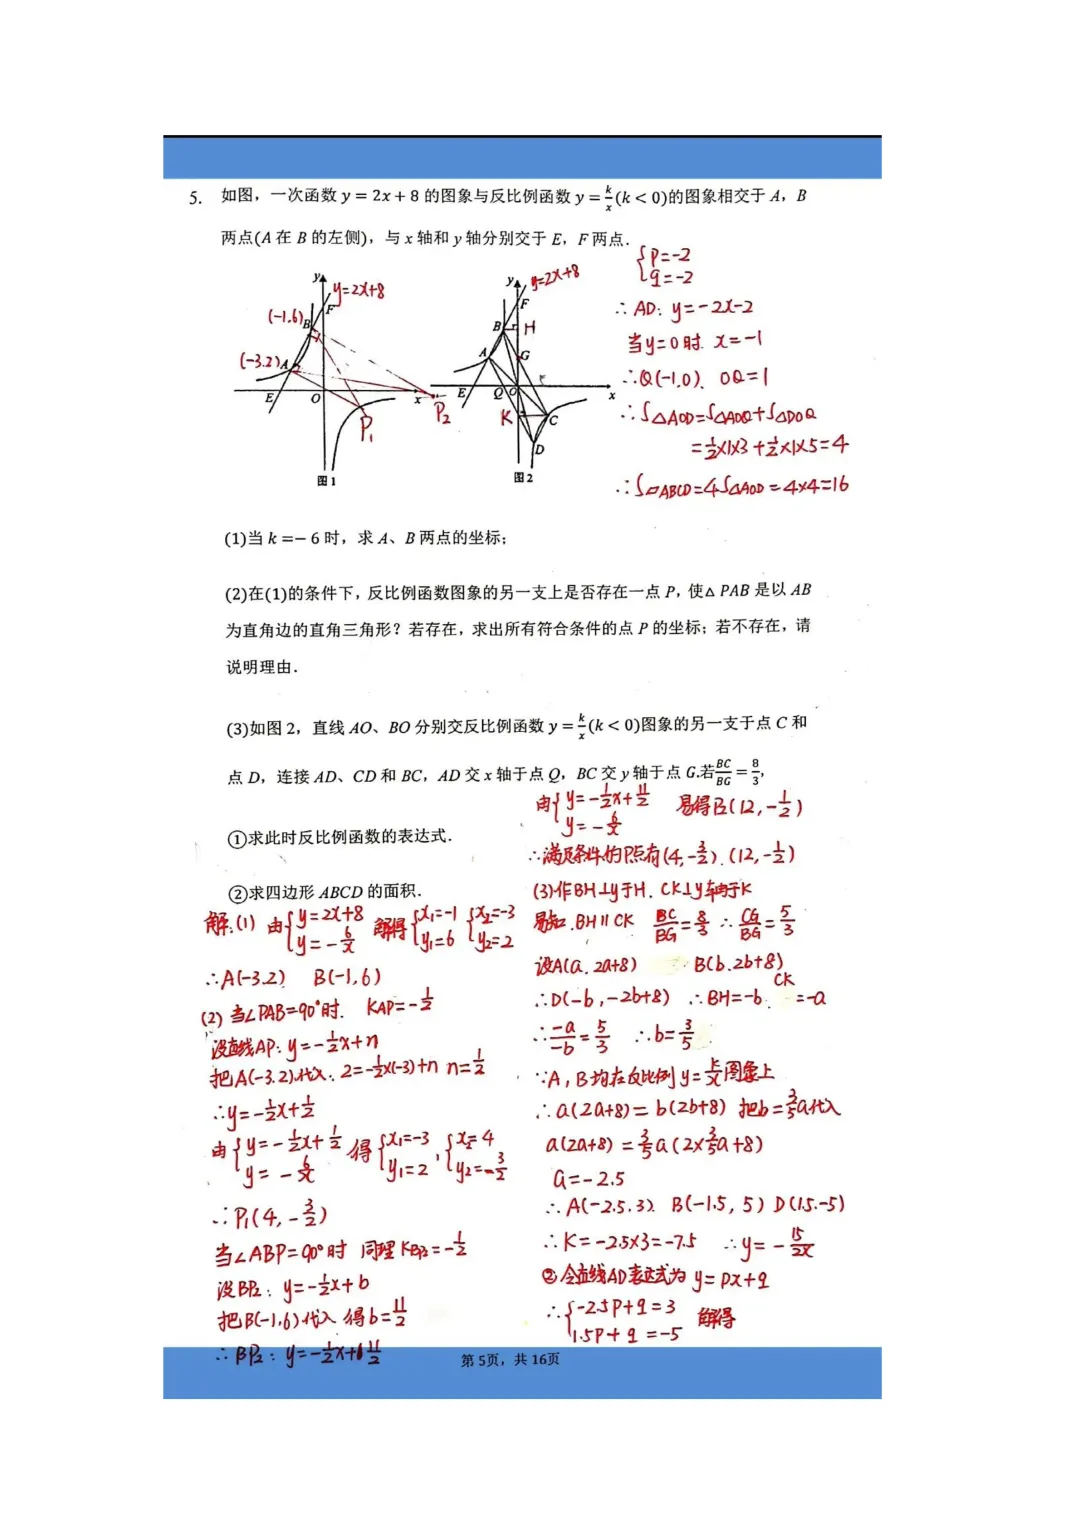 5. 如图，一次函数 y = 2x + 8 的图象与反比例函数 y = k/x (k < 0)的图象相交于 A，B
两点(A 在 B 的左侧)，与 x 轴和 y 轴分别交于 E，F 两点．
y=2x+8
(-1.6)
(-3.2)
y
F
B
A
E
O
x
P₁
P₂
图1
y=2x+8
y
F
B
H
A
G
E
Q
O
x
K
C
D
图2
{p=-2
q=-2
∴AD: y=-2x-2
当y=0时. x=-1
∴Q(-1.0). OQ=1
∴S△AOD=S△AOQ+S△DOQ
=½×1×3+½×1×5=4
∴S▱ABCD=4S△AOD=4×4=16
(1)当 k =− 6 时，求 A、B 两点的坐标；
(2)在(1)的条件下，反比例函数图象的另一支上是否存在一点 P，使△ PAB 是以 AB
为直角边的直角三角形？若存在，求出所有符合条件的点 P 的坐标；若不存在，请
说明理由．
(3)如图 2，直线 AO、BO 分别交反比例函数 y = k/x (k < 0)图象的另一支于点 C 和
点 D，连接 AD、CD 和 BC，AD 交 x 轴于点 Q，BC 交 y 轴于点 G.若 BC/BG = 8/3,
①求此时反比例函数的表达式．
②求四边形 ABCD 的面积．
解:(1) 由{y=2x+8 y=-6/x 解得{x₁=-1 y₁=6 {x₂=-3 y₂=2
∴A(-3.2) B(-1,6)
(2) 当∠PAB=90°时. KAP=-½
设直线AP: y=-½x+n
把A(-3.2)代入. 2=-½×(-3)+n n=½
∴y=-½x+½
由{y=-½x+½ y=-6/x 得{x₁=-3 y₁=2 , {x₂=4 y₂=-3/2
∴P₁(4,-3/2)
当∠ABP=90°时 同理 KBP₂=-½
设BP₂: y=-½x+b
把B(-1,6)代入 得b=11/2
∴BP₂: y=-½x+11/2
由{y=-½x+11/2 y=-6/x 易得P₂(12,-½)
∴满足条件的P点有(4,-3/2). (12,-½)
(3)作BH⊥y于H. CK⊥y轴于K
易知.BH∥CK BC/BG=8/3 ∴CG/BG=5/3
设A(a.2a+8) B(b.2b+8)
∴D(-b,-2b+8) ∴BH=-b. CK=-a
∴-a/-b=5/3 ∴b=3/5
∵A,B均在反比例y=k/x图象上
∴a(2a+8)=b(2b+8) 把b=3/5a代入
a(2a+8)=3/5a(2×3/5a+8)
a=-2.5
∴A(-2.5.3). B(-1.5,5) D(1.5.-5)
∴K=-2.5×3=-7.5 ∴y=-15/2x
②令直线AD表达式为 y=px+q
∴{-2.5p+q=3 1.5p+q=-5 解得
第 5页，共 16页